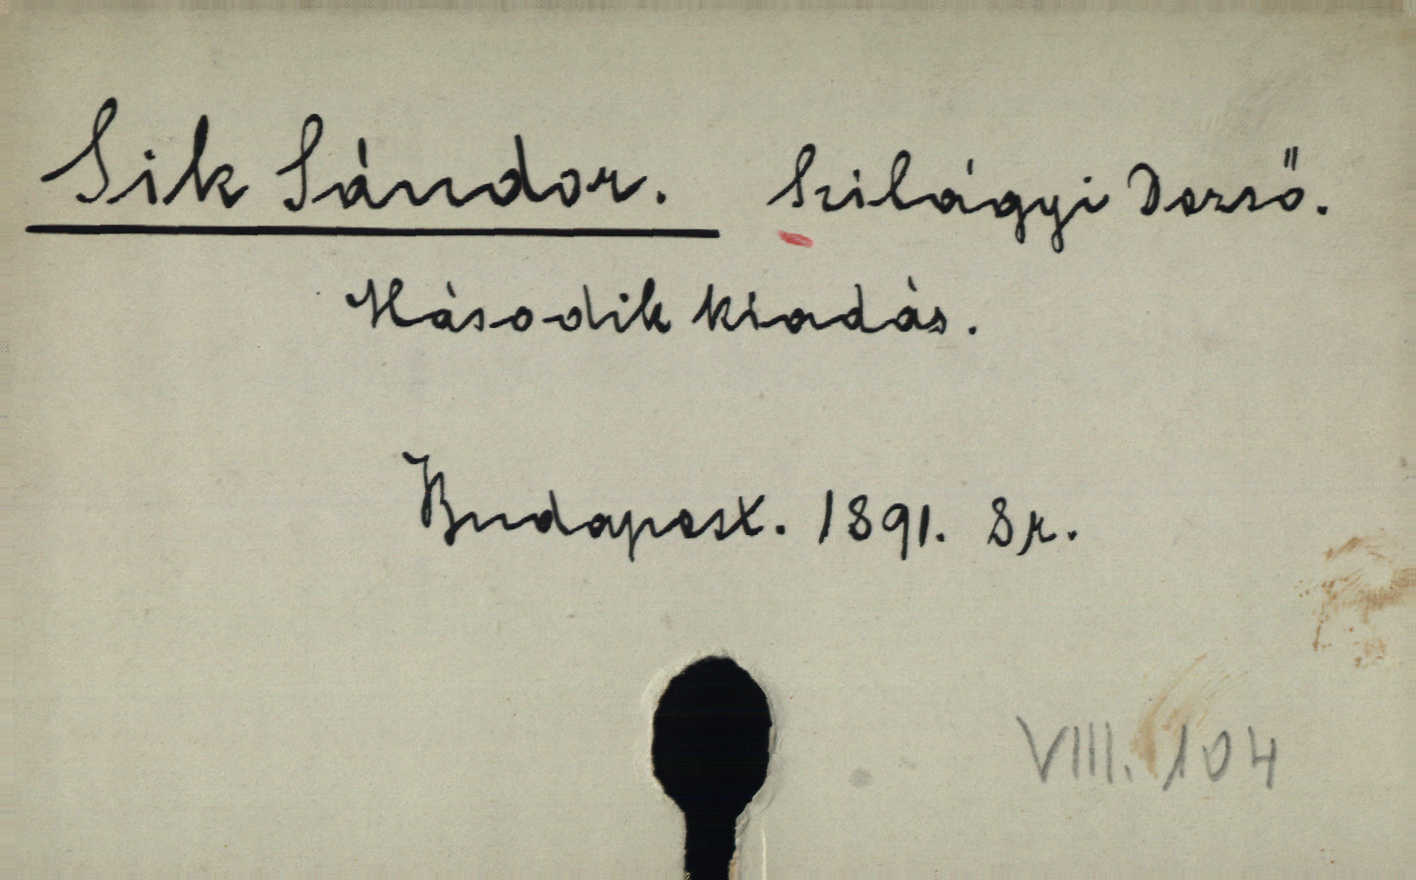 Sik Sándor. Szilágyi Dezső.
Második kiadás.
Budapest. 1891. 8r.
VIII. 104